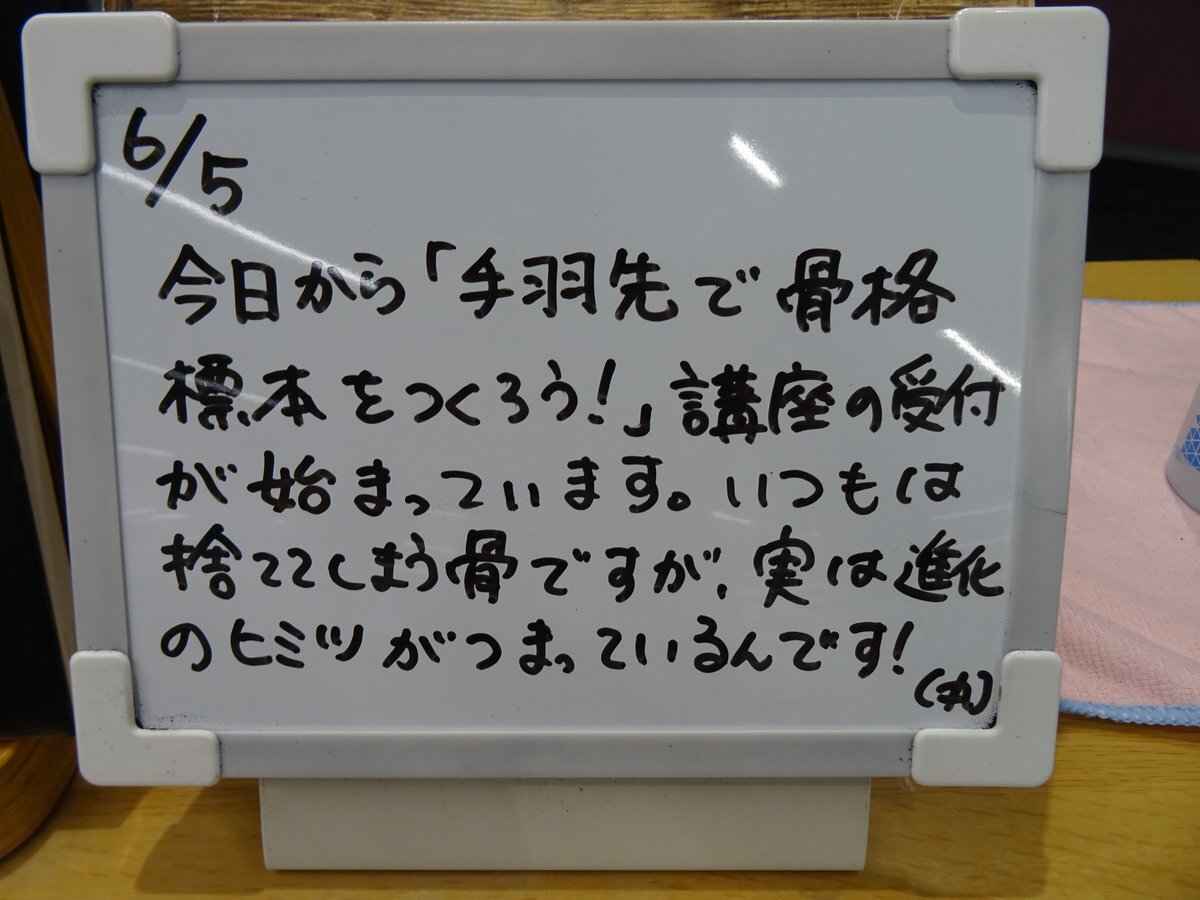 6/5
今日から「手羽先で骨格
標本をつくろう!」講座の受付
が始まっています。いつもは
捨ててしまう骨ですが、実は進化
のヒミツがつまっているんです!
(丸)